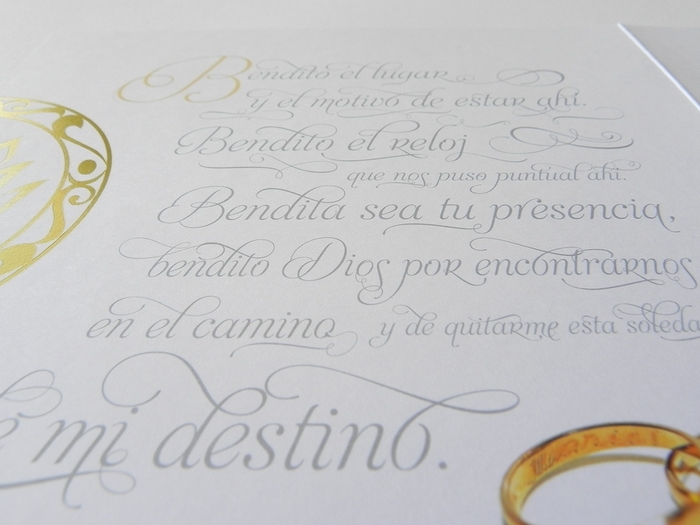 Bendito el lugar
y el motivo de estar ahí.
Bendito el reloj
que nos puso puntual ahí.
Bendita sea tu presencia,
bendito Dios por encontrarnos
en el camino y de quitarme esta soleda
mi destino.